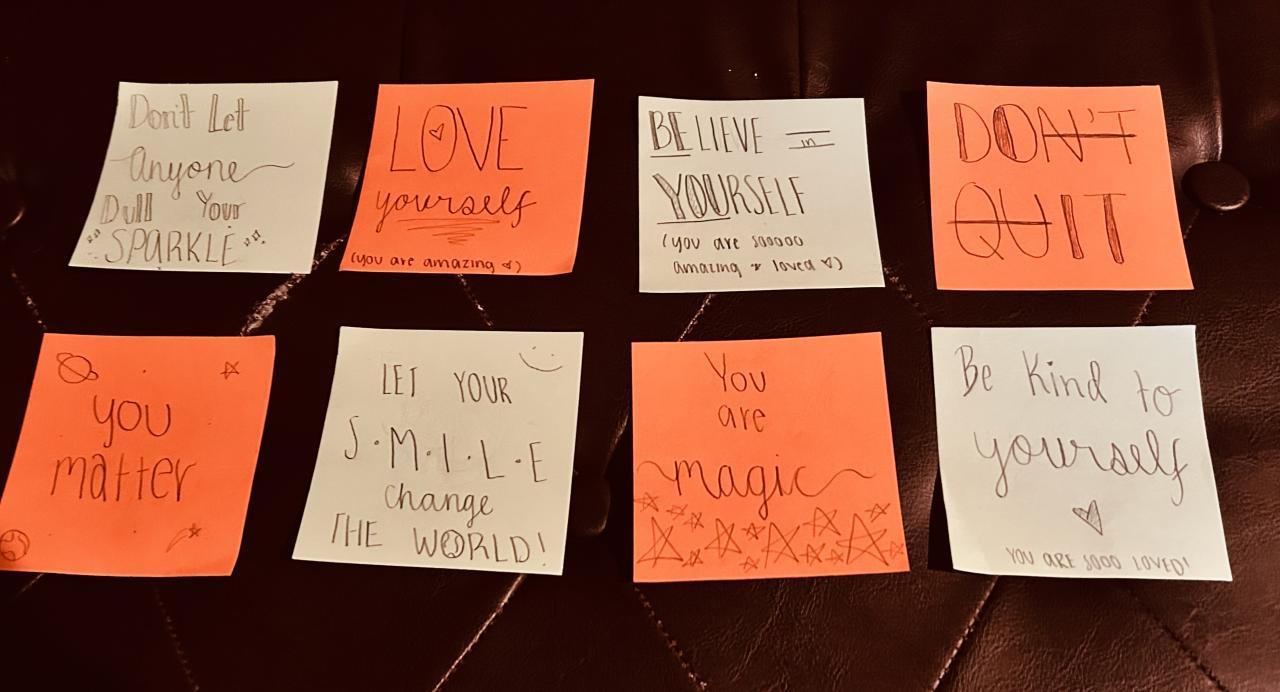 Don't Let
Anyone
Dull Your
SPARKLE
LOVE
yourself
(you are amazing ♡)
BELIEVE in
YOURSELF
(you are sooooo
amazing + loved ♡)
DON'T
QUIT
you
matter
LET YOUR
S.M.I.L.E
change
THE WORLD!
You
are
magic
Be Kind to
yourself
YOU ARE SOOO LOVED!